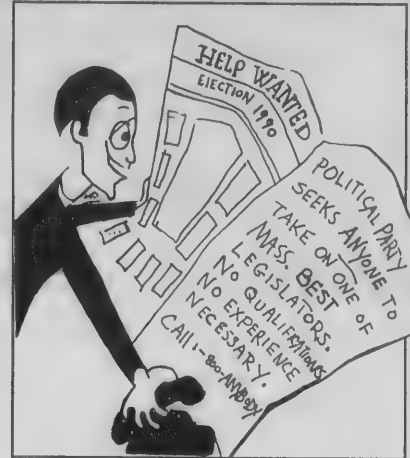 HELP WANTED
ELECTION 1990
POLITICAL PARTY
SEEKS ANYONE TO
TAKE ON ONE OF
MASS. BEST
LEGISLATORS.
NO QUALIFICATIONS
NO EXPERIENCE
NECESSARY.
CALL 1-800-ANYBODY